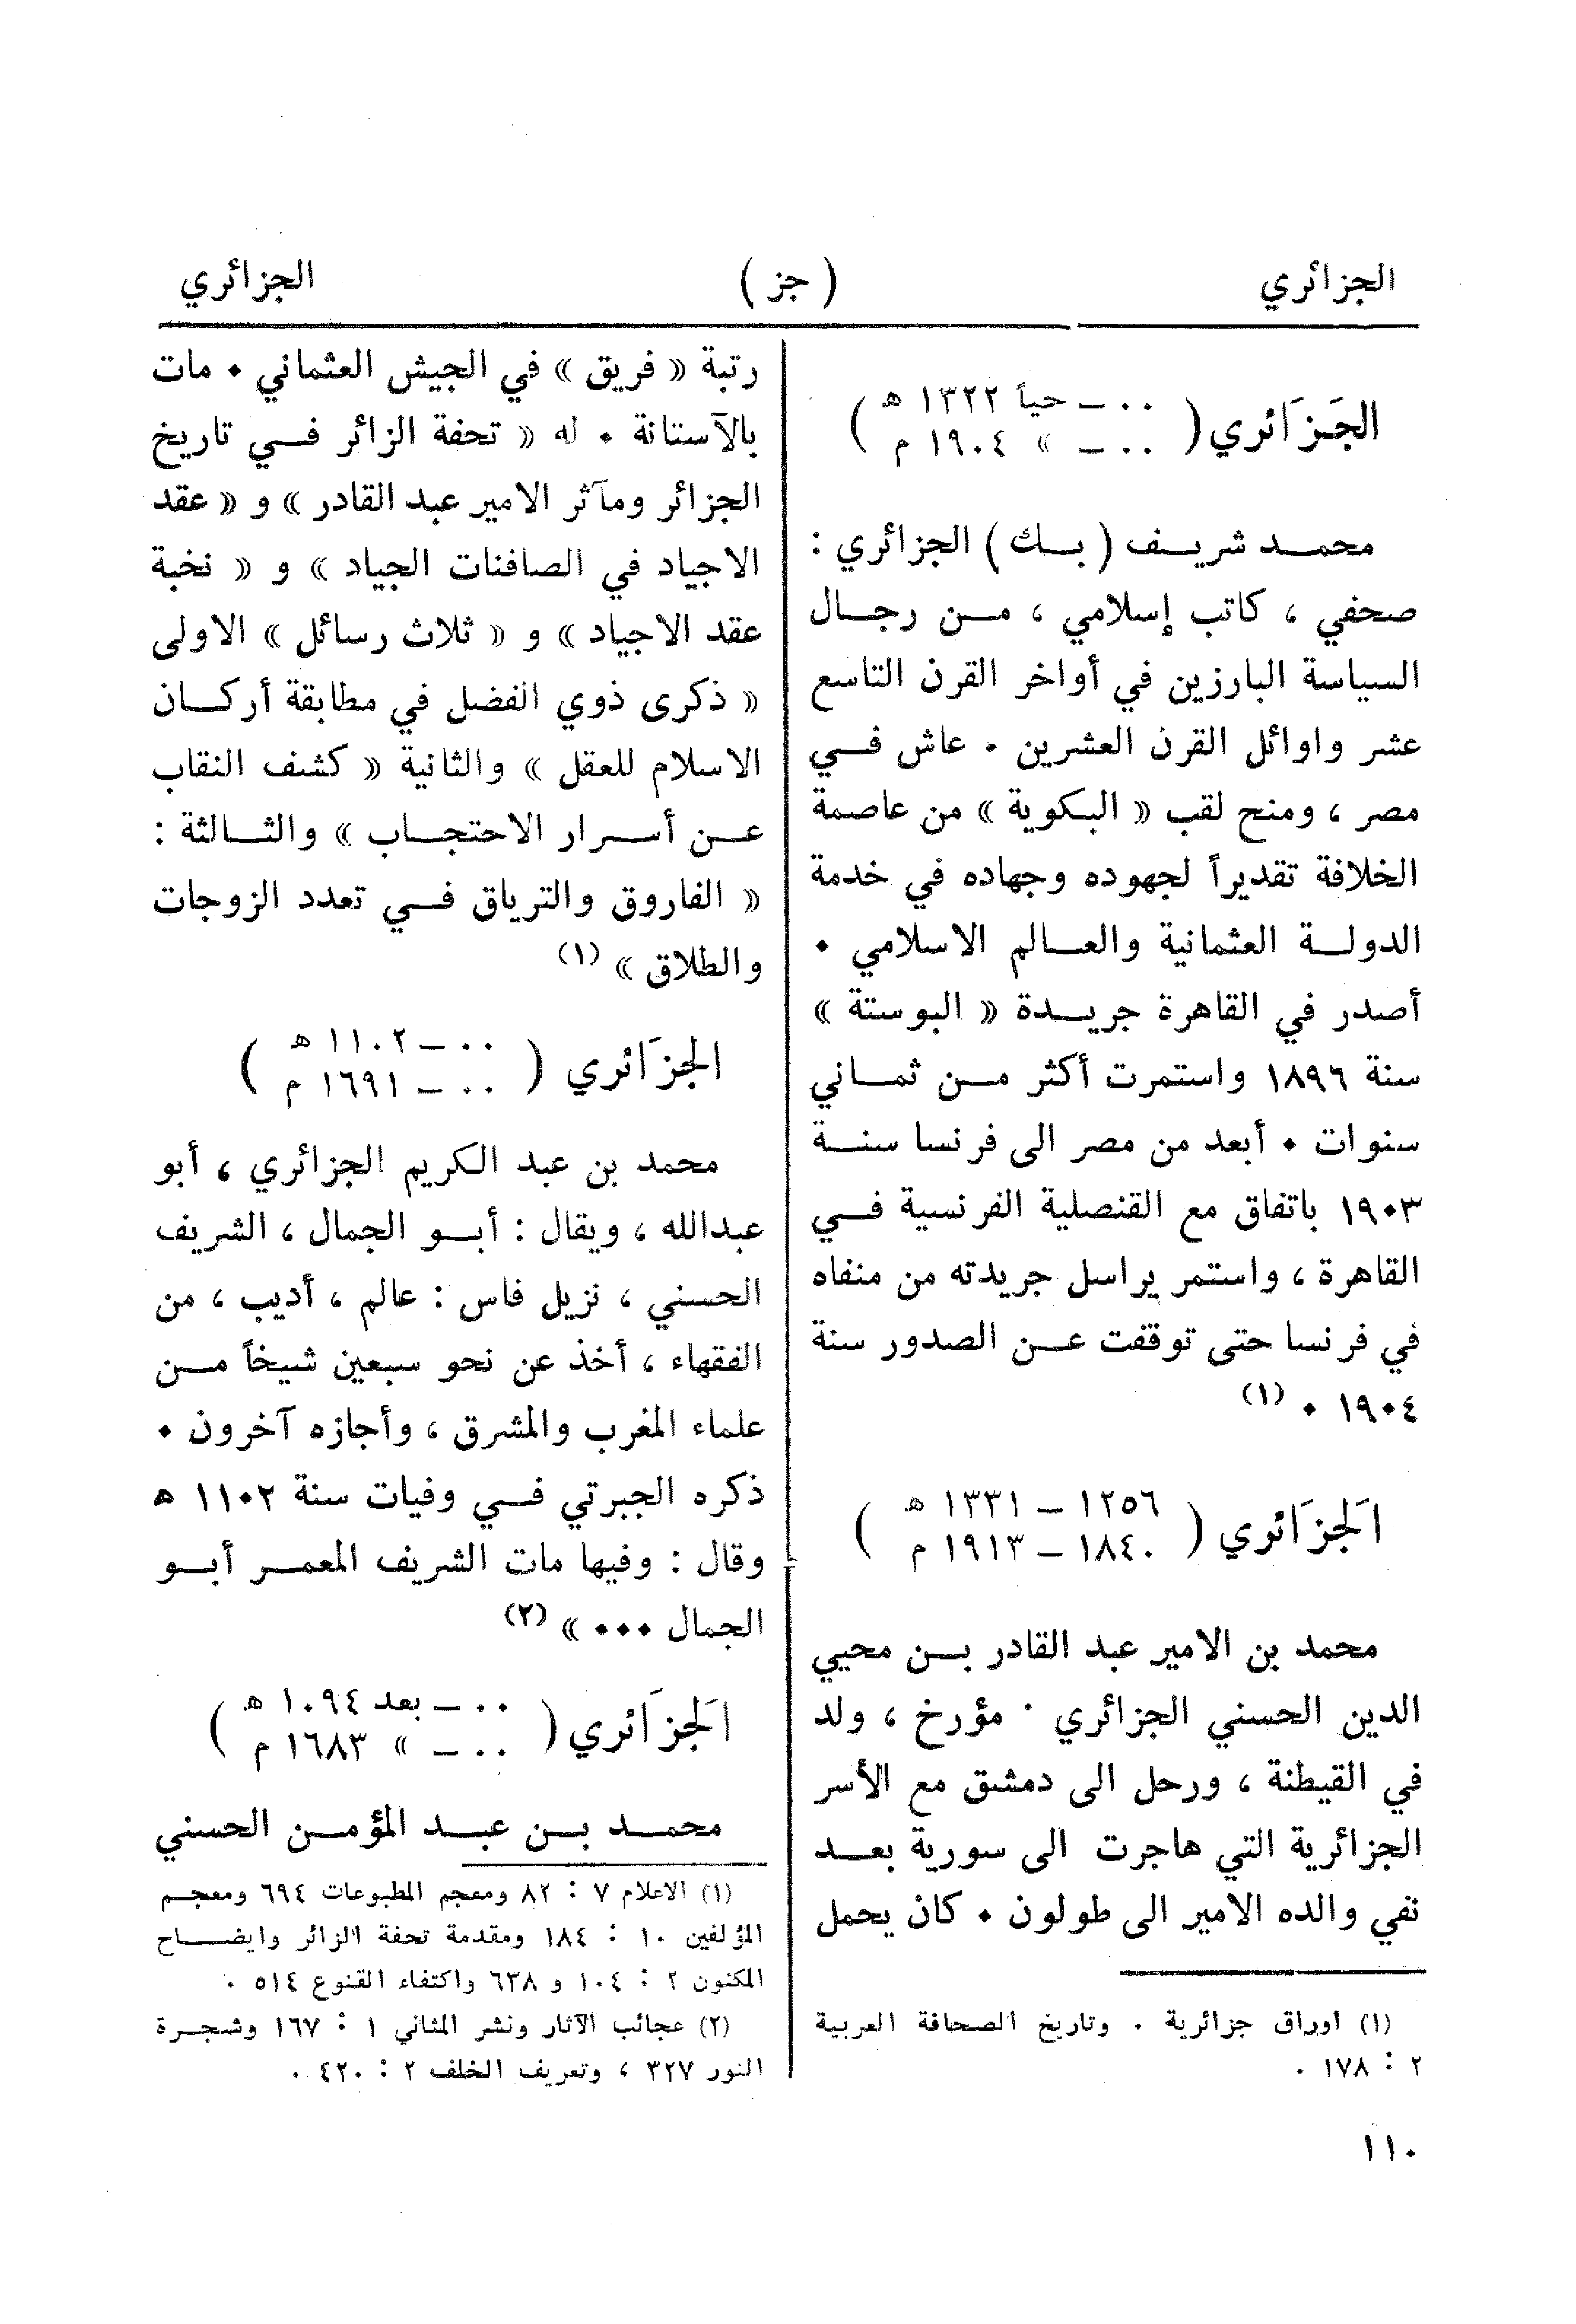 الجزائري ( جز ) الجزائري
الجَزَائري ( ٠٠ – حياً ١٣٢٢ ه
٠٠ – » ١٩٠٤ م )
محمد شريف ( بك ) الجزائري :
صحفي ، كاتب إسلامي ، من رجال
السياسة البارزين في أواخر القرن التاسع
عشر واوائل القرن العشرين ٠ عاش في
مصر ، ومنح لقب « البكوية » من عاصمة
الخلافة تقديراً لجهوده وجهاده في خدمة
الدولة العثمانية والعالم الاسلامي ٠
أصدر في القاهرة جريدة « البوستة »
سنة ١٨٩٦ واستمرت أكثر من ثماني
سنوات ٠ أبعد من مصر الى فرنسا سنة
١٩٠٣ باتفاق مع القنصلية الفرنسية في
القاهرة ، واستمر يراسل جريدته من منفاه
في فرنسا حتى توقفت عن الصدور سنة
١٩٠٤ ٠ (١)
الَجزَائري ( ١٢٥٦ – ١٣٣١ ه
١٨٤٠ – ١٩١٣ م )
محمد بن الامير عبد القادر بن محيي
الدين الحسني الجزائري ٠ مؤرخ ، ولد
في القيطنة ، ورحل الى دمشق مع الأسر
الجزائرية التي هاجرت الى سورية بعد
نفي والده الامير الى طولون ٠ كان يحمل
(١) اوراق جزائرية ٠ وتاريخ الصحافة العربية
٢ : ١٧٨ ٠
رتبة « فريق » في الجيش العثماني ٠ مات
بالآستانة ٠ له « تحفة الزائر في تاريخ
الجزائر ومآثر الامير عبد القادر » و « عقد
الاجياد في الصافنات الجياد » و « نخبة
عقد الاجياد » و « ثلاث رسائل » الاولى
« ذكرى ذوي الفضل في مطابقة أركان
الاسلام للعقل » والثانية « كشف النقاب
عن أسرار الاحتجاب » والثالثة :
« الفاروق والترياق في تعدد الزوجات
والطلاق » (١)
الجزَائري ( ٠٠ – ١١٠٢ ه
٠٠ – ١٦٩١ م )
محمد بن عبد الكريم الجزائري ، أبو
عبدالله ، ويقال : أبو الجمال ، الشريف
الحسني ، نزيل فاس : عالم ، أديب ، من
الفقهاء ، أخذ عن نحو سبعين شيخاً من
علماء المغرب والمشرق ، وأجازه آخرون ٠
ذكره الجبرتي في وفيات سنة ١١٠٢ ه
وقال : وفيها مات الشريف المعمر أبو
الجمال ٠٠٠ » (٢)
الَجزَائري ( ٠٠ – بعد ١٠٩٤ ه
٠٠ – » ١٦٨٣ م )
محمد بن عبد المؤمن الحسني
(١) الاعلام ٧ : ٨٢ ومعجم المطبوعات ٦٩٤ ومعجم
المؤلفين ١٠ : ١٨٤ ومقدمة تحفة الزائر وايضاح
المكنون ٢ : ١٠٤ و ٦٣٨ واكتفاء القنوع ٥١٤ ٠
(٢) عجائب الآثار ونشر المثاني ١ : ١٦٧ وشجرة
النور ٣٢٧ ، وتعريف الخلف ٢ : ٤٢٠ ٠
١١٠